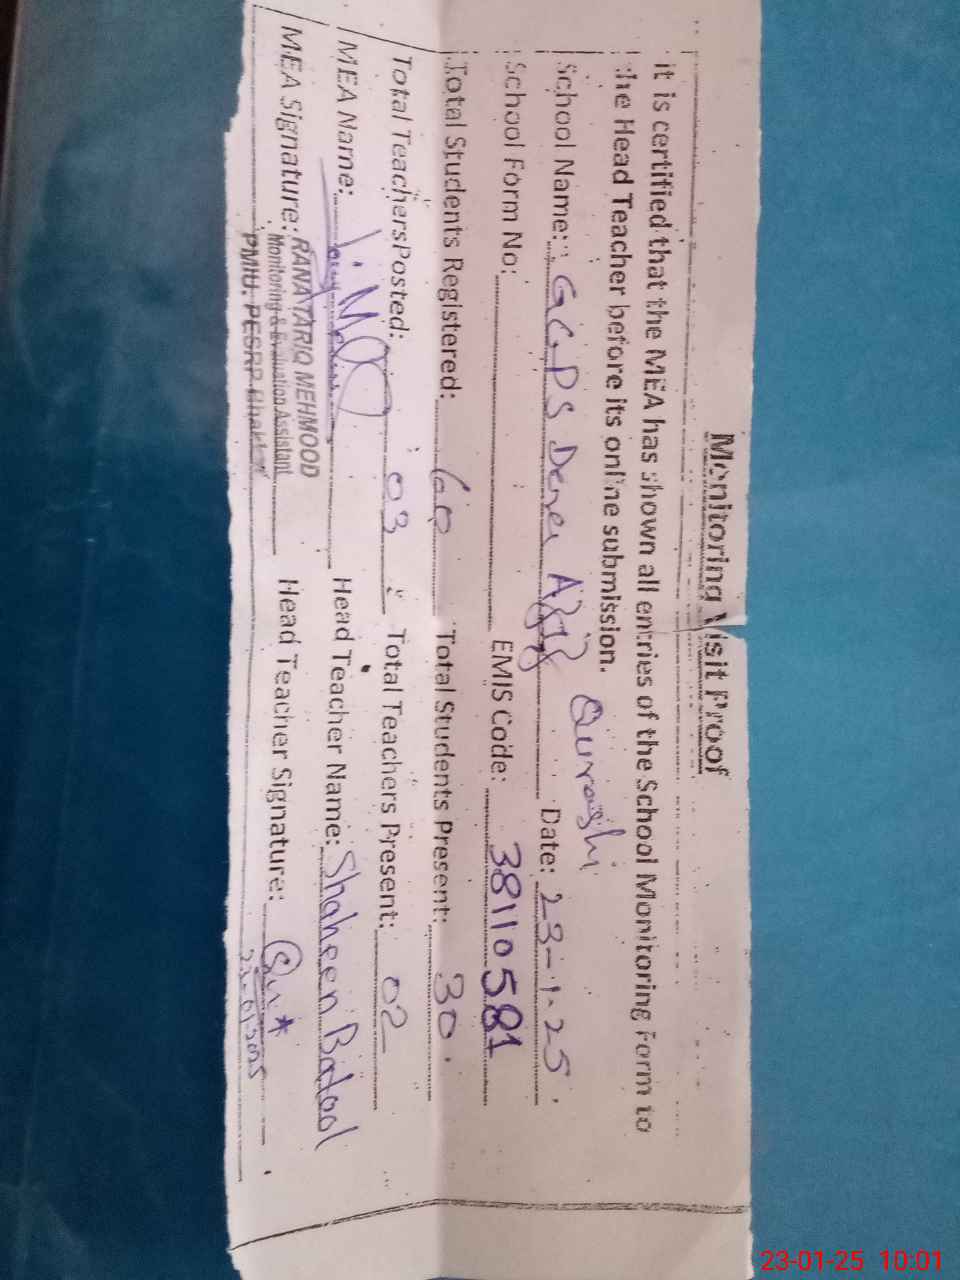 Monitoring Visit Proof
it is certified that the MEA has shown all entries of the School Monitoring Form to
the Head Teacher before its online submission.
School Name: GGPS Dera Qureshi Date: 23-1-25.
School Form No: EMIS Code: 38110581
Total Students Registered: 60 Total Students Present: 30.
Total Teachers Posted: 03 Total Teachers Present: 02
MEA Name: Head Teacher Name: Shaheen Batool
MEA Signature: Head Teacher Signature:
RANA TARIQ MEHMOOD
Monitoring & Evaluation Assistant
PMIU. PESRP Bhakkar
23-01-2025
23-01-25 10:01